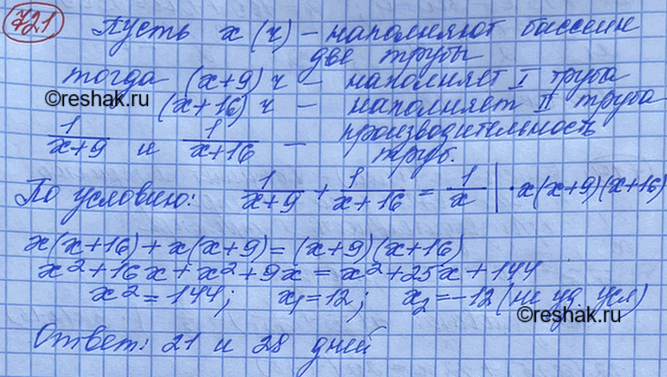 721 Пусть x (ч) – наполняют бассейн
две трубы
тогда (x+9) ч – наполняет I труба
©reshak.ru (x+16) ч – наполняет II труба
1/(x+9) и 1/(x+16) – производительность
труб.
По условию: 1/(x+9) + 1/(x+16) = 1/x | · x(x+9)(x+16)
x(x+16)+x(x+9)=(x+9)(x+16)
x²+16x+x²+9x=x²+25x+144
x²=144; x₁=12; x₂=-12 (не уд. усл)
©reshak.ru
Ответ: 21 и 28 дней